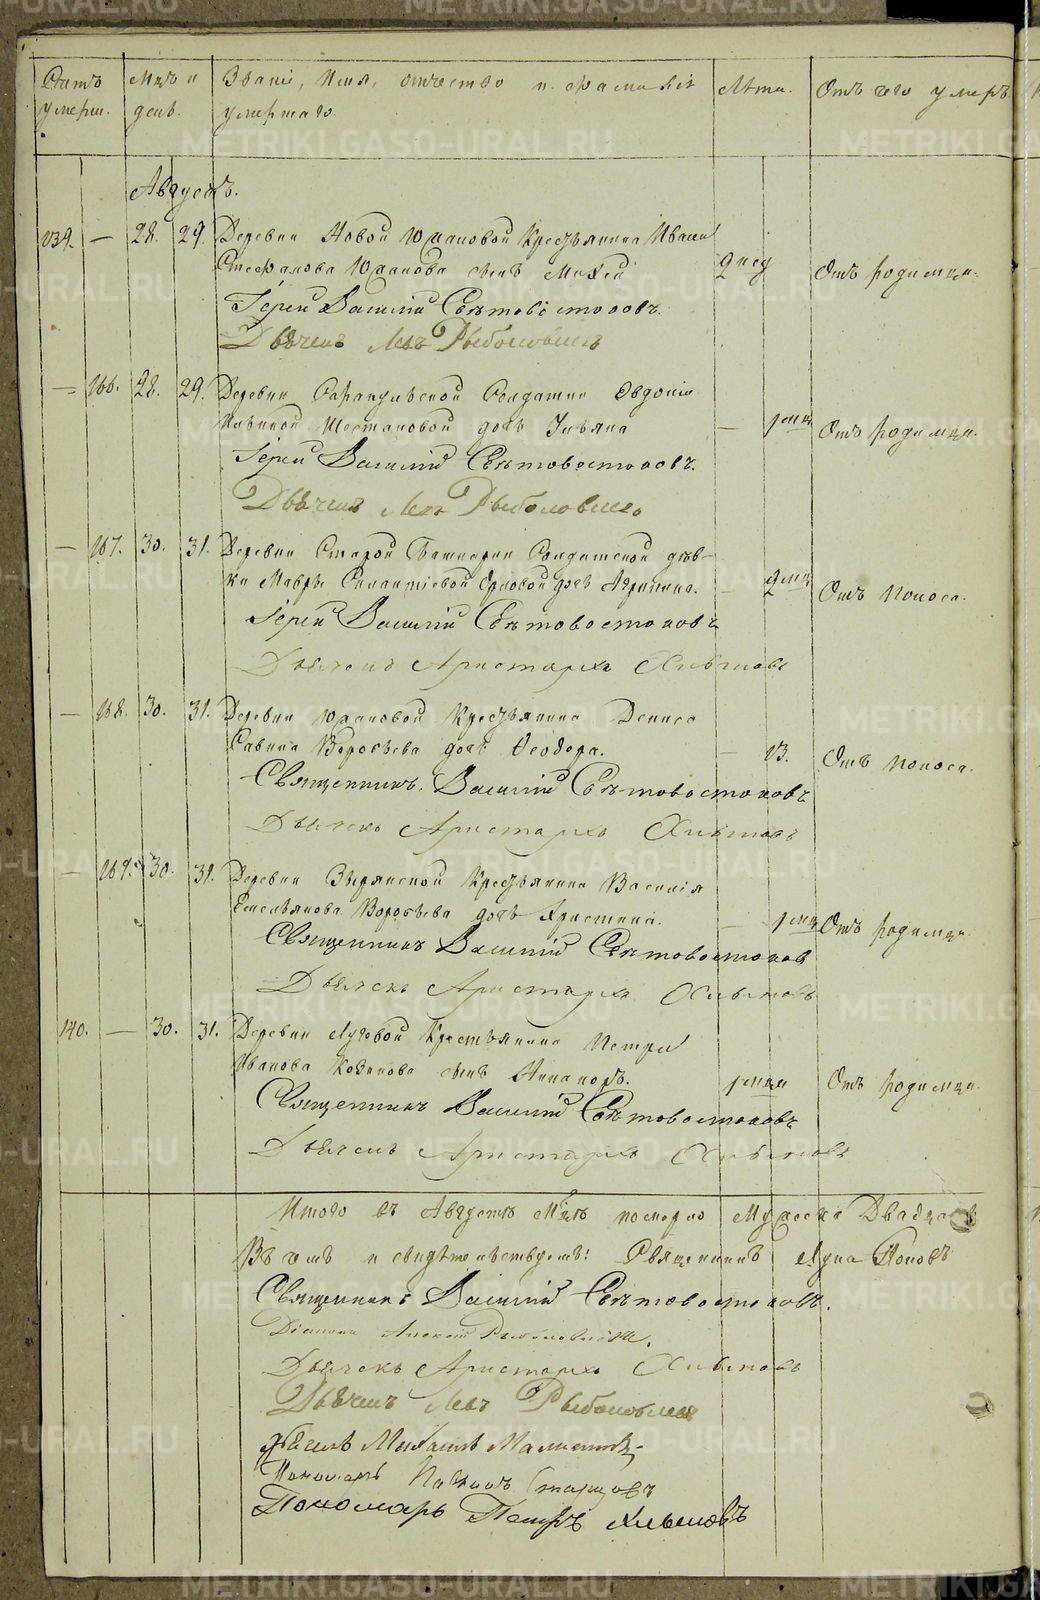 Счетъ умерш.
Мцъ и день.
Званіе, Имя, отчество и фамилія умершаго.
Лѣта.
Отъ чего умеръ
Августъ.
139. — 28. 29. Деревни Новой Юмановой Крестьянина Ивана
Стефанова Юманова сынъ 2 нед Отъ родимца.
Іерей Василій Свѣтовостоковъ.
Дьячекъ Левъ Рыболовлевъ
— 166. 28. 29. Деревни Сарапульской Солдатки Евдокіи
Шестаковой дочь Ульяна — 1 мцъ Отъ родимца.
Іерей Василій Свѣтовостоковъ.
Дьячекъ Левъ Рыболовлевъ
— 167. 30. 31. Деревни Старой Башкарки Солдатской дѣв-
ки Мавры Орловой дочь Агрипина. — 2 мцъ Отъ поноса.
Іерей Василій Свѣтовостоковъ
Дьячекъ Аристархъ Хлыновъ
— 168. 30. 31. Деревни Юмановой Крестьянина Дениса
Савина Воробьева дочь Ѳеодора. — 13. Отъ поноса.
Священникъ Василій Свѣтовостоковъ
Дьячекъ Аристархъ Хлыновъ
— 169. 30. 31. Деревни Зырянской Крестьянина Василія
Емельянова Воробьева дочь Христина. — 1 мцъ Отъ родимца.
Священникъ Василій Свѣтовостоковъ
Дьячекъ Аристархъ Хлыновъ
140. — 30. 31. Деревни Луговой Крестьянина Петра
Иванова сынъ Никаноръ. 1 мцъ Отъ родимца.
Священникъ Василій Свѣтовостоковъ
Дьячекъ Аристархъ Хлыновъ
Итого въ Августѣ Мцѣ померло Мужеска Двадцать
Въ чемъ и свидѣтельствуемъ: Священникъ Лука Поповъ
Священникъ Василій Свѣтовостоковъ.
Діаконъ Алексѣй Рыболовлевъ.
Дьячекъ Аристархъ Хлыновъ
Дьячекъ Левъ Рыболовлевъ
Дьячекъ Михаилъ
Пономарь Павелъ Старцовъ
Пономарь Петръ Хлыновъ
METRIKI.GASO-URAL.RU